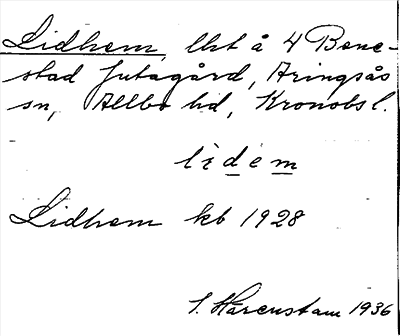 Lidhem, lht å 4 Bene-
stad Jutagård, Aringsås
sn, Allbo hd, Kronobs l.
lidem
Lidhem kb 1928
S. Harenstam 1936